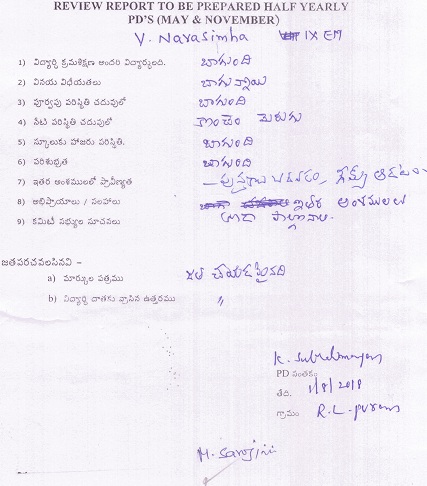 REVIEW REPORT TO BE PREPARED HALF YEARLY
PD'S (MAY & NOVEMBER)
V. Narasimha IX EM
1) విద్యార్థి క్రమశిక్షణ అందరి విద్యార్థులది. బాగుంది
2) వినయ విధేయతలు బాగున్నాయి
3) పూర్వపు పరిస్థితి చదువులో బాగుంది
4) నేటి పరిస్థితి చదువులో కొంచెం మెరుగు
5) స్కూలుకు హాజరు పరిస్థితి. బాగుంది
6) పరిశుభ్రత బాగుంది
7) ఇతర అంశములలో ప్రావీణ్యత - పుస్తకాలు చదవడం, గేమ్స్ ఆడటం
8) అభిప్రాయాలు / సలహాలు ఇతర అంశములలు
9) కమిటీ సభ్యుల సూచనలు కూడా పాల్గొనాలి.
జతపరచవలసినవి -
a) మార్కుల పత్రము జత చేయడమైనది
b) విద్యార్థి దాతకు వ్రాసిన ఉత్తరము "
K. Subrahmanyam
PD సంతకం
తేది. 1/8/2018
గ్రామం R.L. puram
M. Sarojini